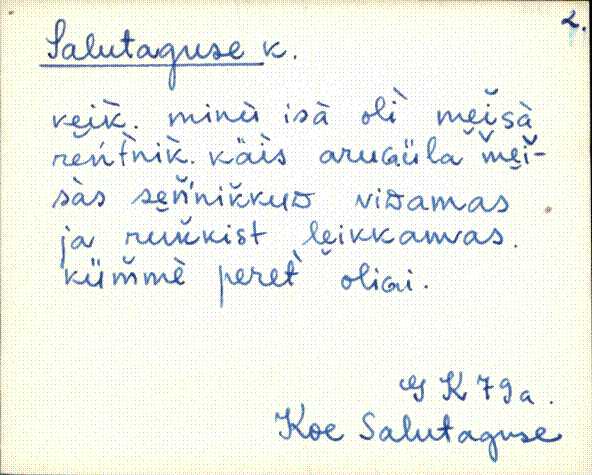 2.
Salutaguse k.
keìk. minù isà olì mei̮sà
reńtnìk. käìs aruGülà mei̮-
sàs seńnikkuD viDamas
ja rukkist lei̮kkamas.
kümmè peret̀ oliGi.
K 79a.
Koe Salutaguse